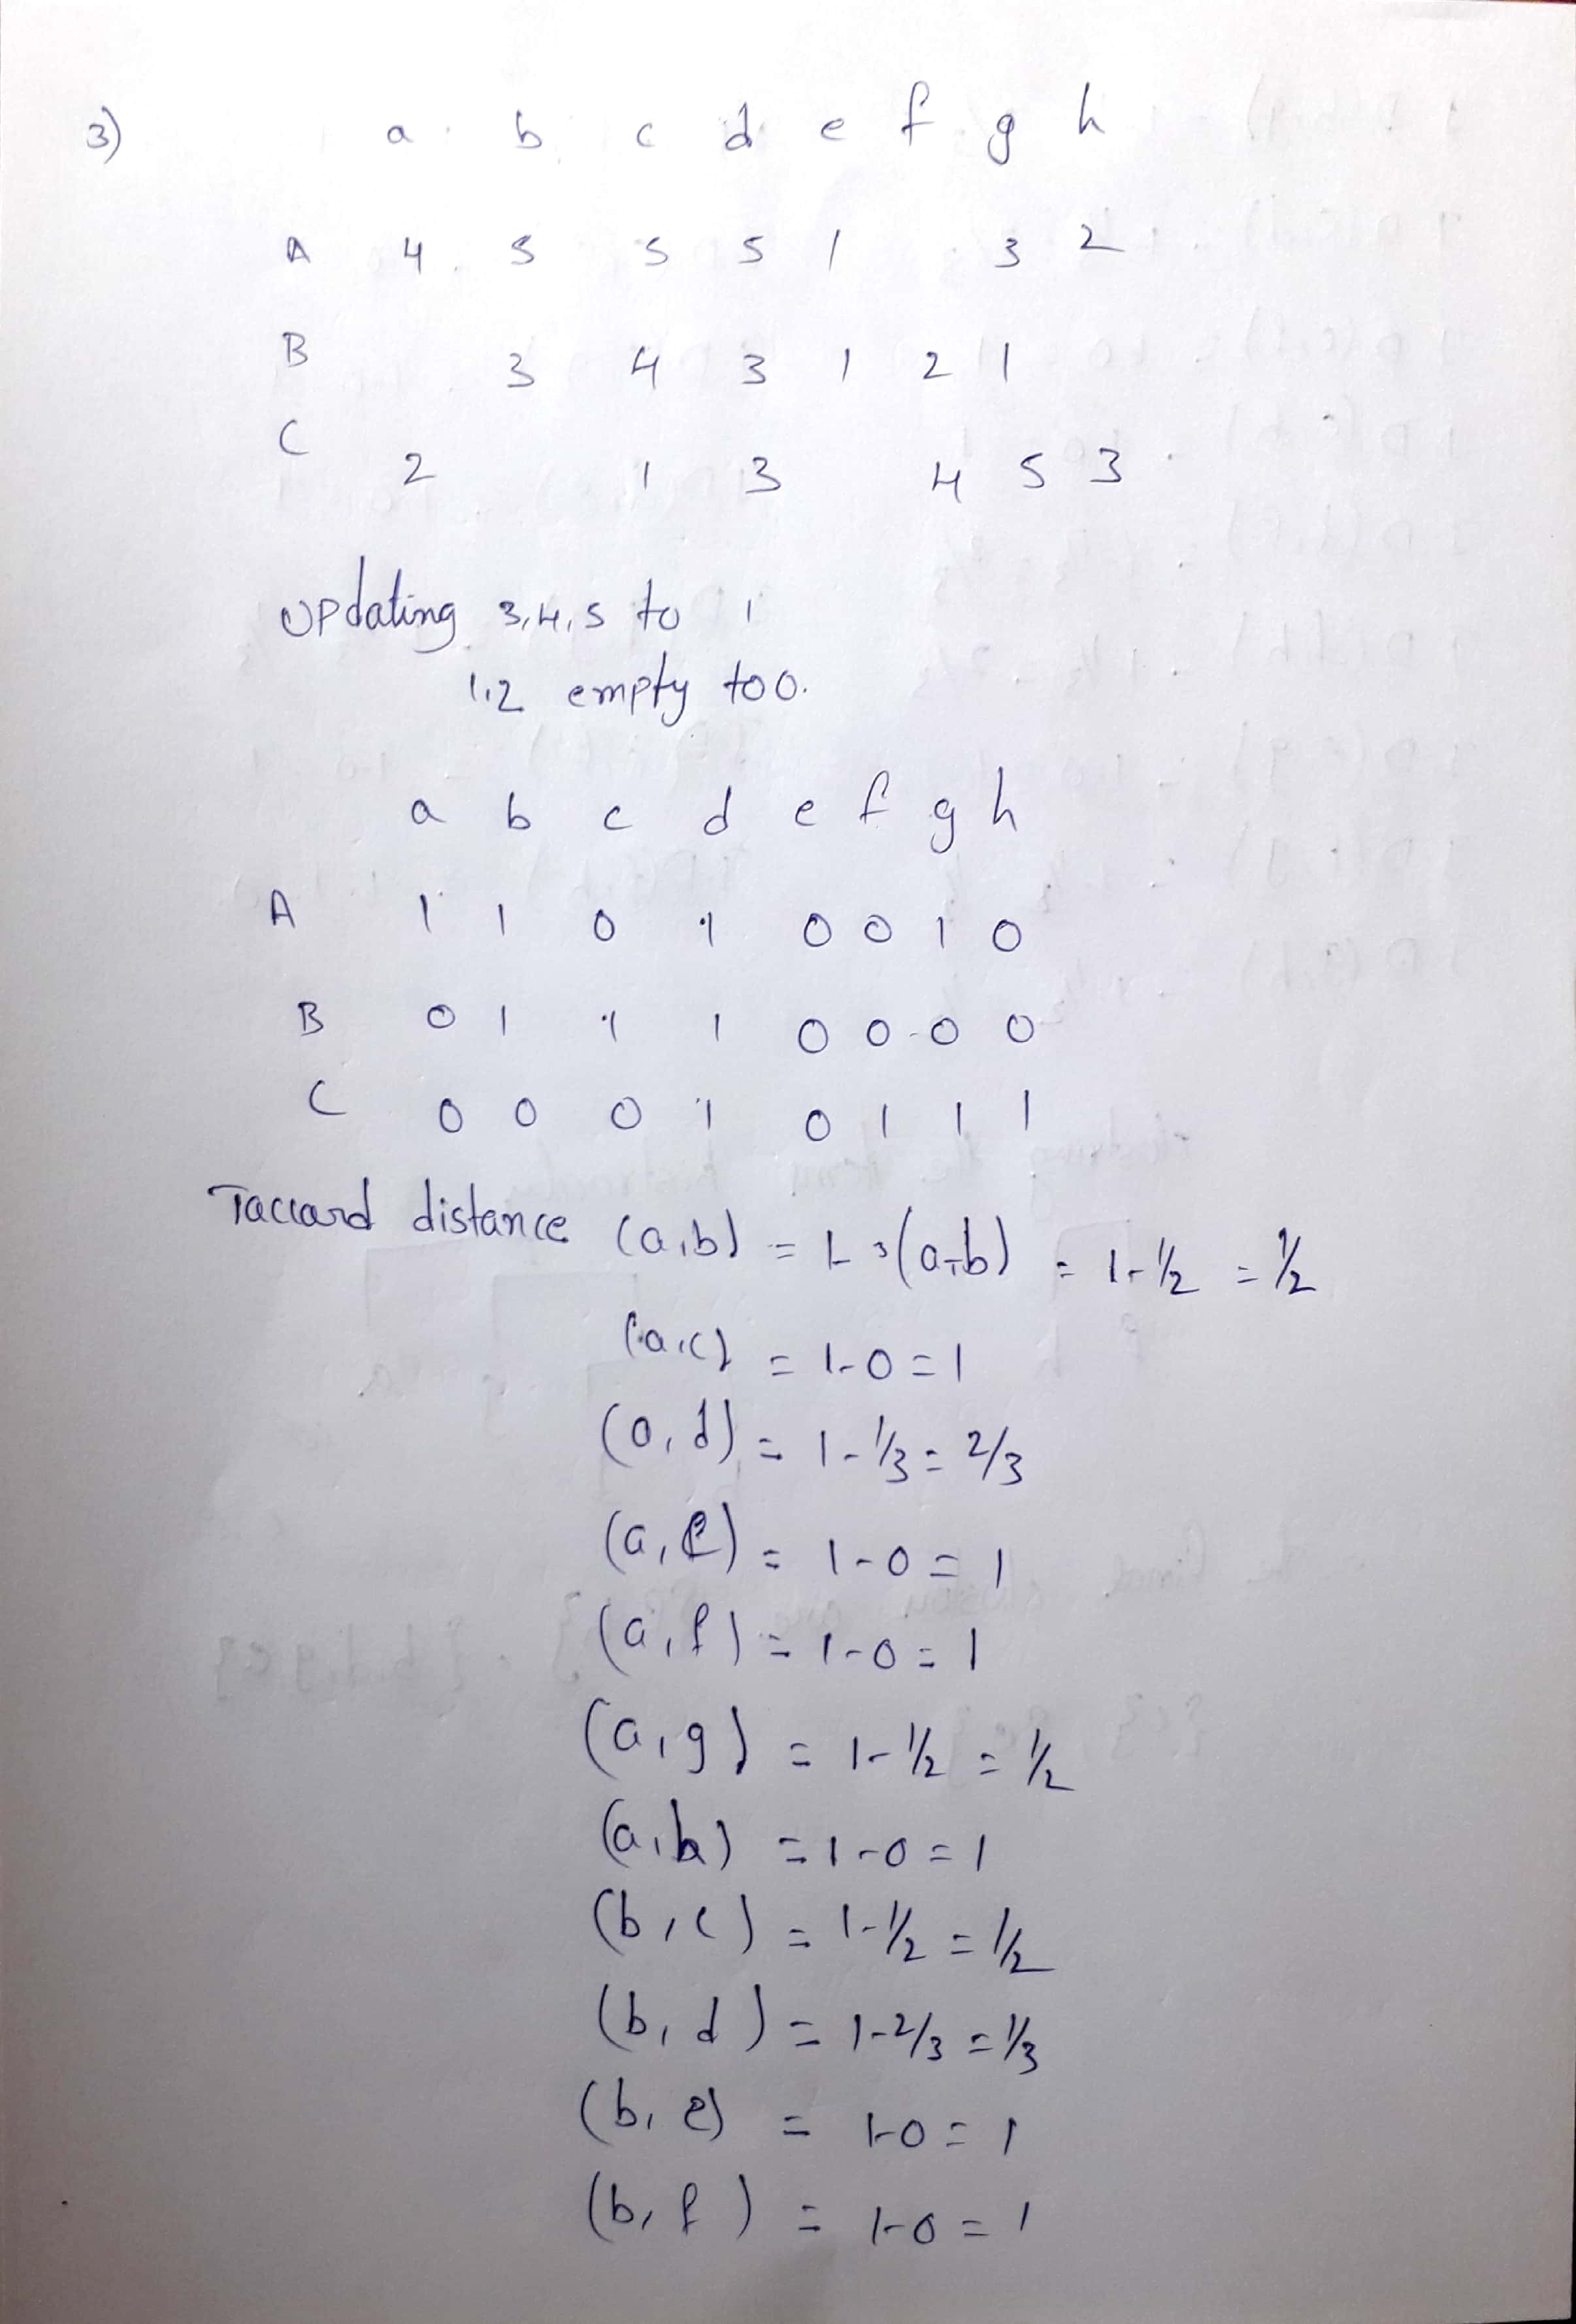 3) a b c d e f g h
A 4 5 5 5 1 3 2
B 3 4 3 1 2 1
C 2 1 3 4 5 3
Updating 3,4,5 to 1
1,2 empty to 0.
a b c d e f g h
A 1 1 0 1 0 0 1 0
B 0 1 1 1 0 0 0 0
C 0 0 0 1 0 1 1 1
Jaccard distance (a,b) = 1 - J(a,b) = 1-1/2 = 1/2
(a,c) = 1-0=1
(a,d) = 1-1/3 = 2/3
(a,e) = 1-0=1
(a,f) = 1-0=1
(a,g) = 1-1/2 = 1/2
(a,h) = 1-0=1
(b,c) = 1-1/2 = 1/2
(b,d) = 1-2/3 = 1/3
(b,e) = 1-0=1
(b,f) = 1-0=1